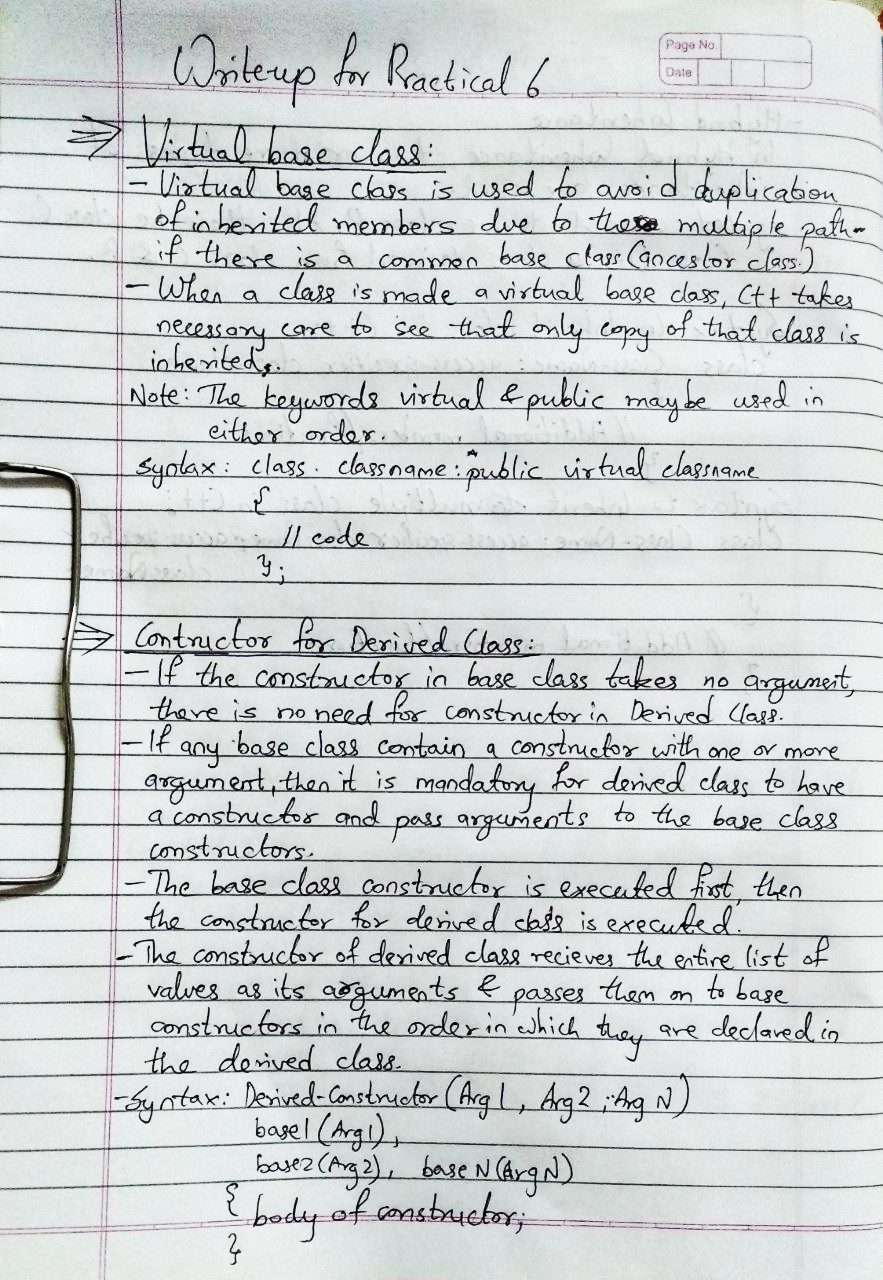 Page No.
Date
Writeup for Practical 6
⇒ Virtual base class:
- Virtual base class is used to avoid duplication
of inherited members due to these multiple path
if there is a common base class (ancestor class.)
- When a class is made a virtual base class, C++ takes
necessary care to see that only copy of that class is
inherited.
Note: The keywords virtual & public maybe used in
either order.
Syntax: class. classname: public virtual classname
{
// code
};
⇒ Contructor for Derived Class:
- If the constructor in base class takes no argument,
there is no need for constructor in Derived Class.
- If any base class contain a constructor with one or more
argument, then it is mandatory for derived class to have
a constructor and pass arguments to the base class
constructors.
- The base class constructor is executed first, then
the constructor for derived class is executed.
- The constructor of derived class recieves the entire list of
values as its arguments & passes them on to base
constructors in the order in which they are declared in
the derived class.
- Syntax: Derived-Constructor (Arg1, Arg2, ..Arg N)
base1 (Arg1),
base2 (Arg2), base N (ArgN)
{
body of constructor;
}